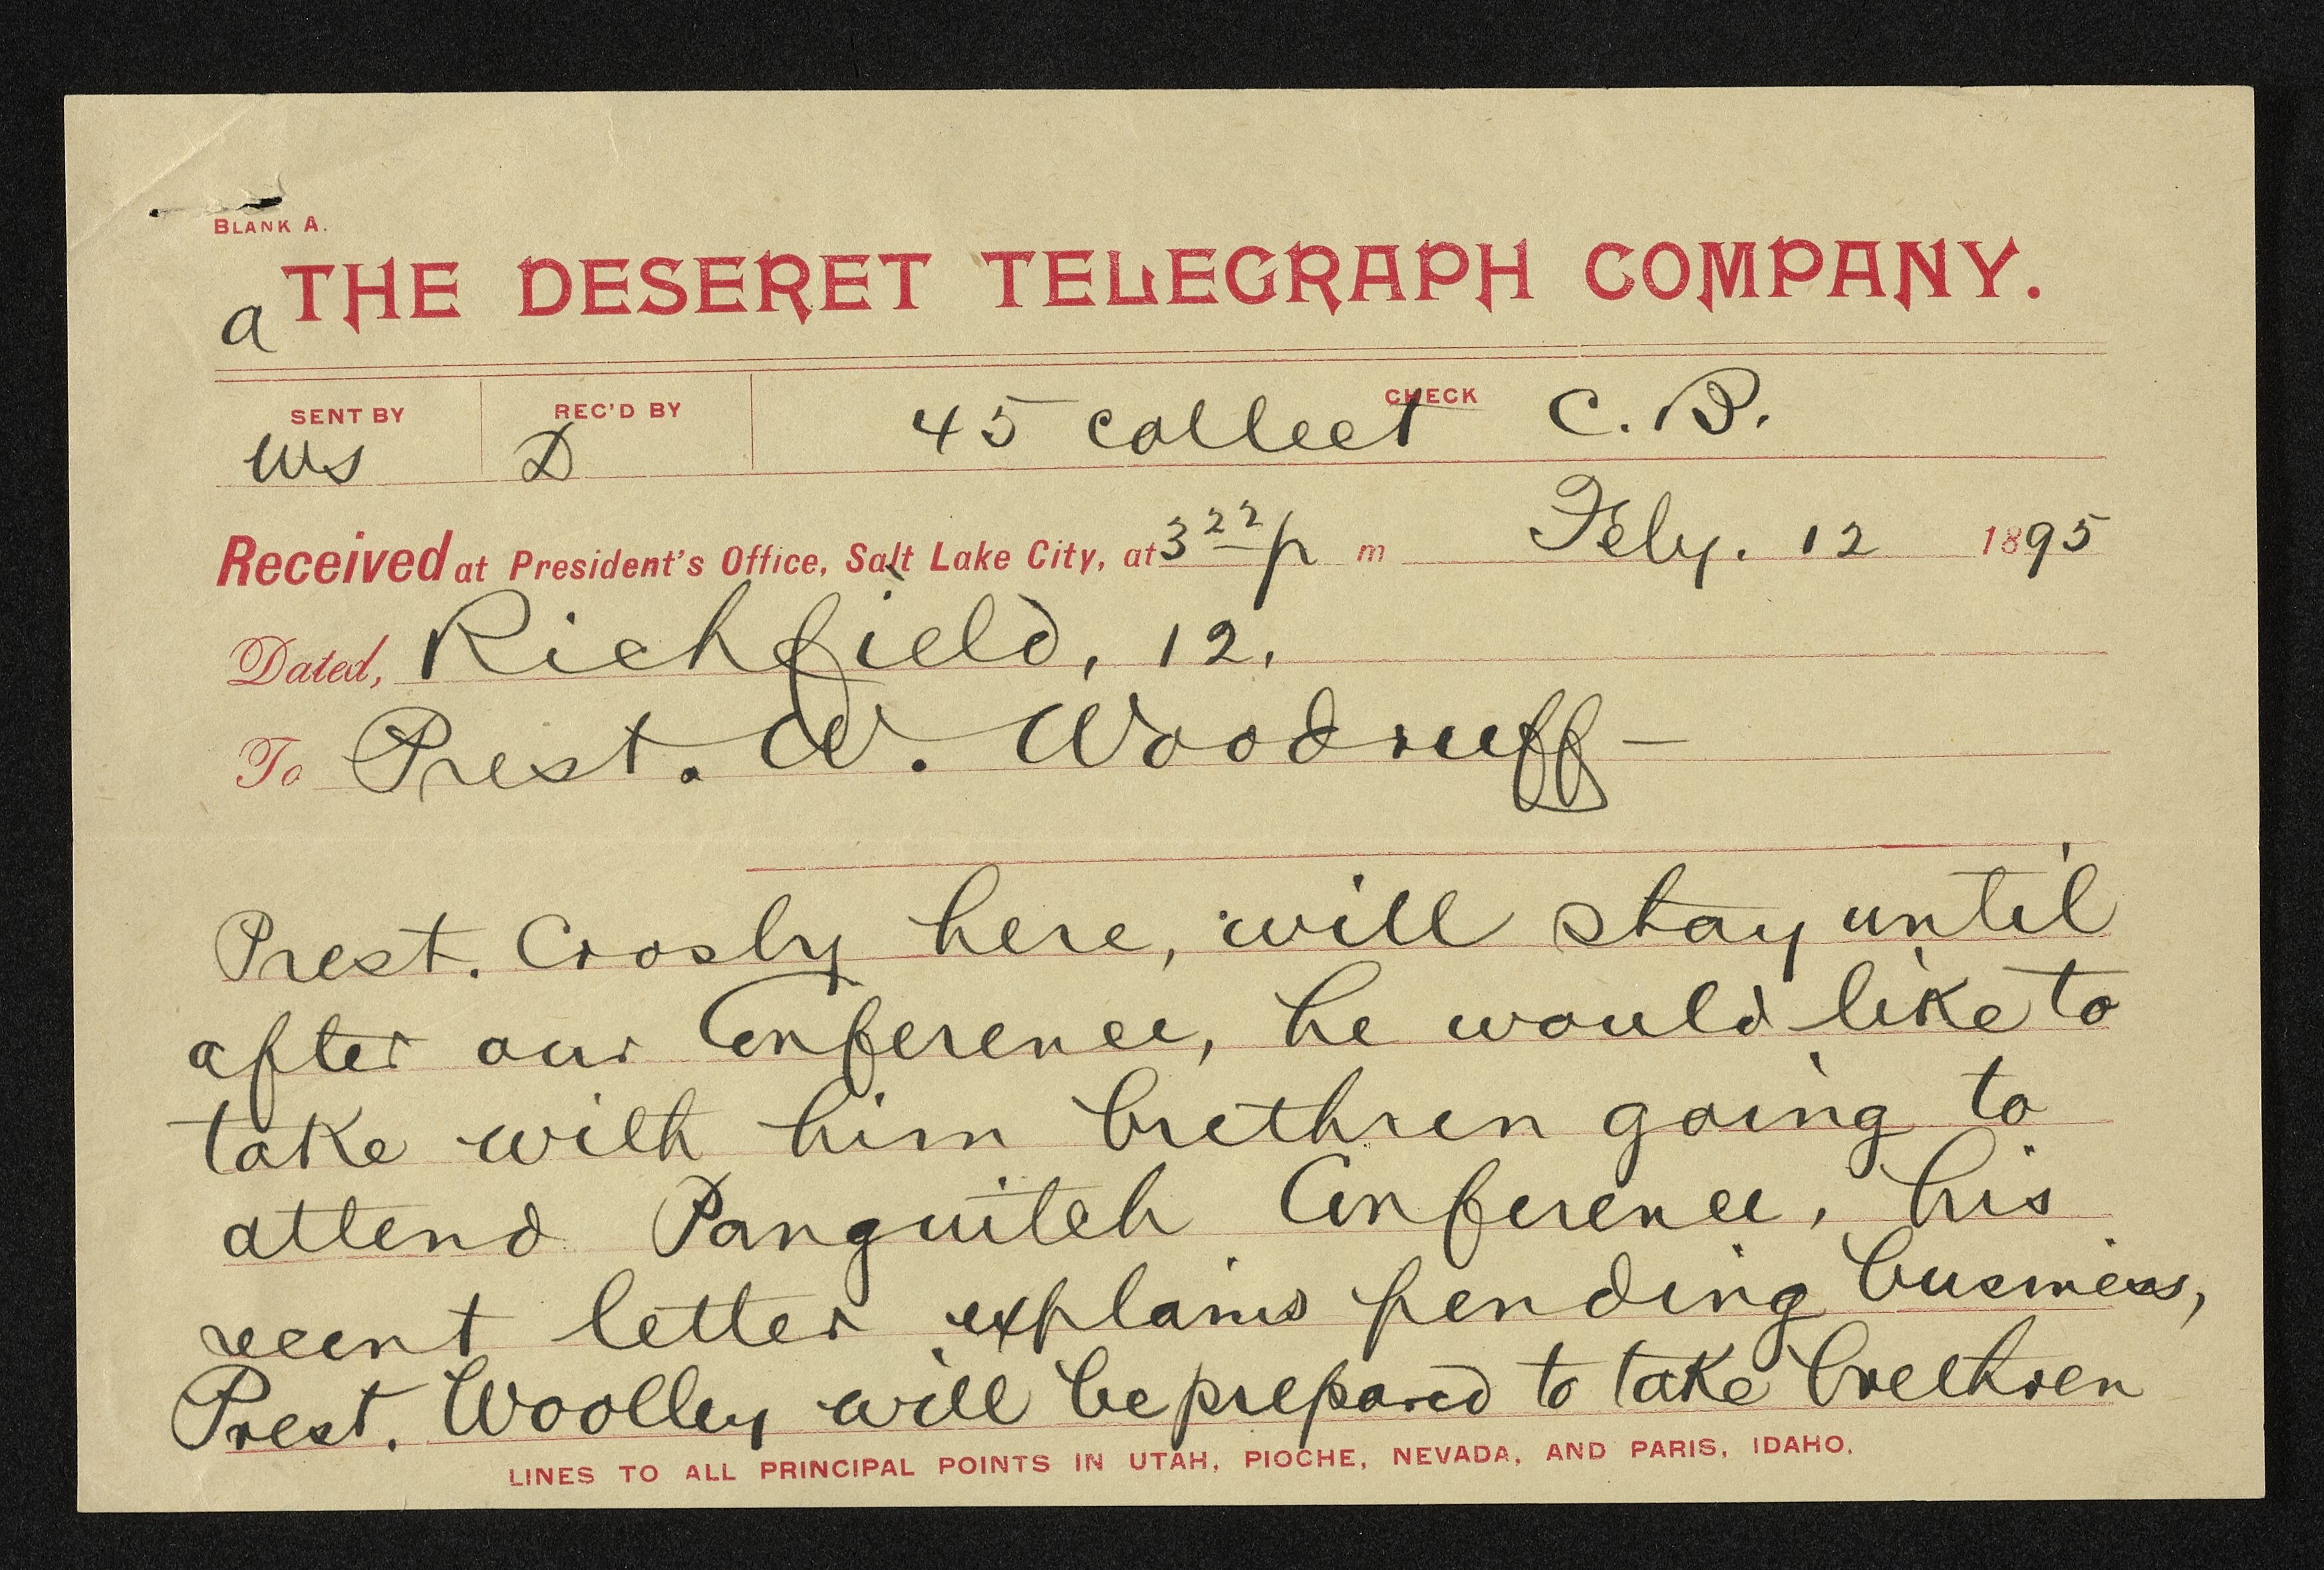 BLANK A.
a THE DESERET TELEGRAPH COMPANY.
SENT BY REC'D BY CHECK
Ws D 45 collect C.B.
Received at President's Office, Salt Lake City, at 3 22 p m Feby. 12 1895
Dated, Richfield, 12.
To Prest. W. Woodruff—
Prest. Crosby here, will stay until
after our Conference, he would like to
take with him brethren going to
attend Panguitch Conference, his
recent letter explains pending business,
Prest. Woolley will be prepared to take brethren
LINES TO ALL PRINCIPAL POINTS IN UTAH, PIOCHE, NEVADA, AND PARIS, IDAHO.